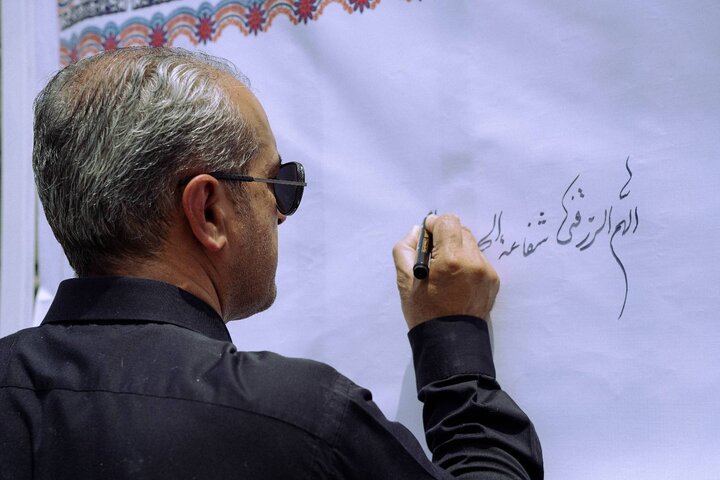 اللهم ارزقنی شفاعة الح